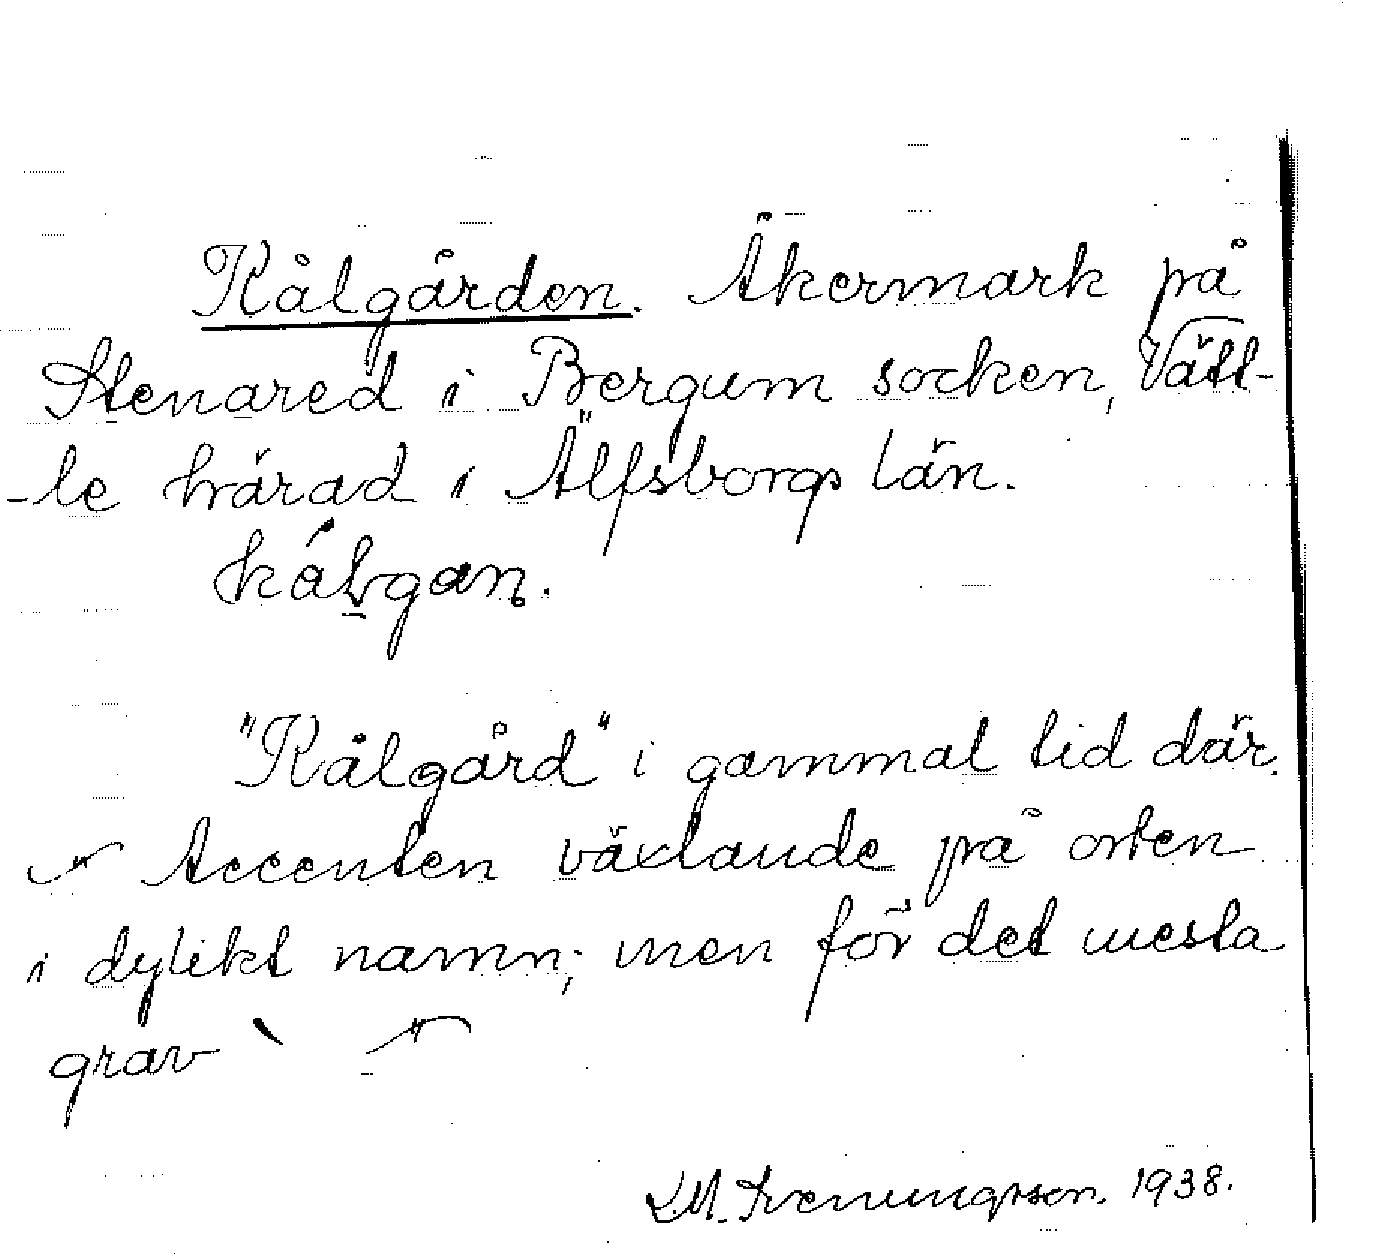 Kålgården. Åkermark på
Stenared i Bergum socken, Vätt-
-le härad i Älfsborgs län.
kálgan.
"Kålgård" i gammal tid där.
Accenten växlande på orten
i dylikt namn; men för det mesta
grav `
D.M. Svenungsson. 1938.